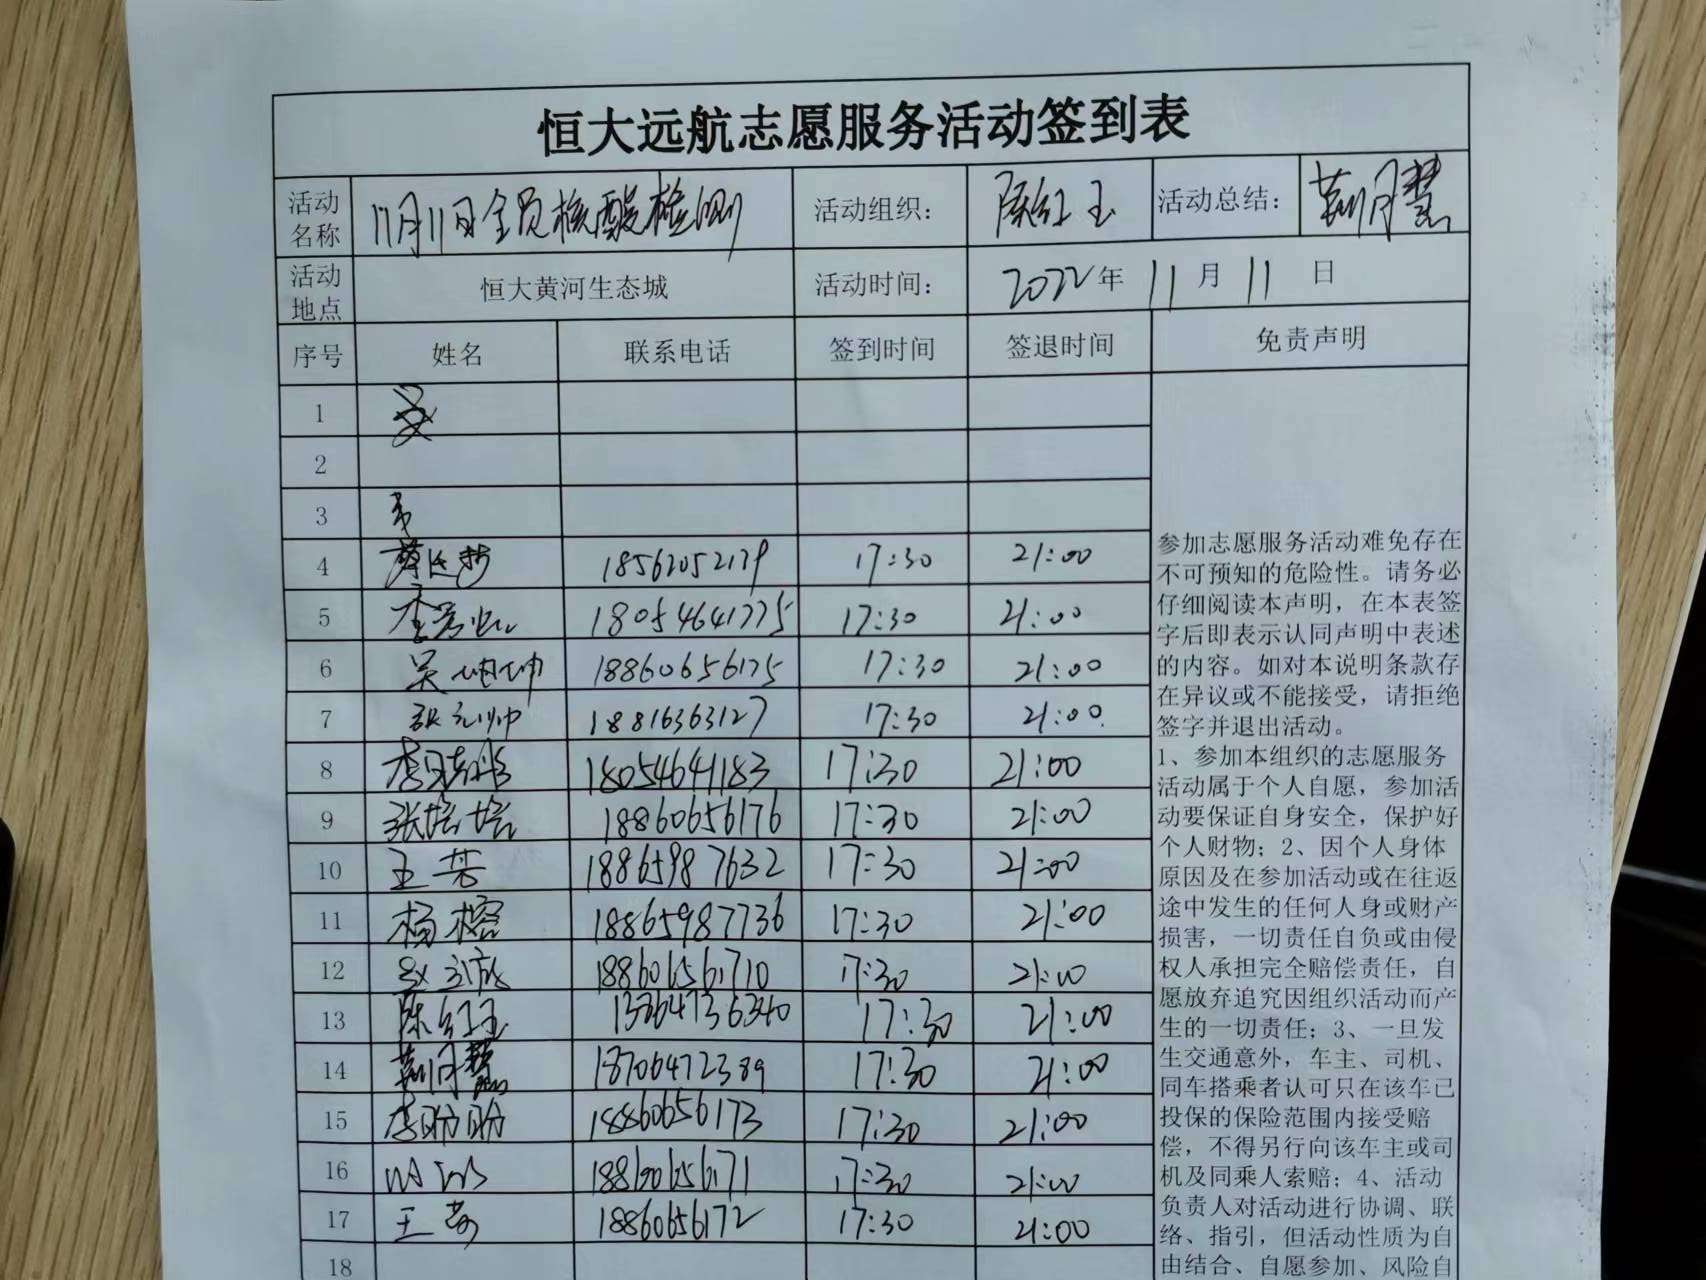 恒大远航志愿服务活动签到表
活动名称 11月11日全员核酸检测 活动组织： 陈红玉 活动总结： 荆月慧
活动地点 恒大黄河生态城 活动时间： 2022年 11月 11日
序号 姓名 联系电话 签到时间 签退时间 免责声明
1
2
3
4 18562052179 17:30 21:00
5 18054641775 17:30 21:00
6 吴坤坤 18860656175 17:30 21:00
7 张元帅 18816363127 17:30 21:00
8 18054641183 17:30 21:00
9 张培培 18860656176 17:30 21:00
10 王芳 18865987632 17:30 21:00
11 杨榕 18865987736 17:30 21:00
12 188606561710 17:30 21:00
13 陈红玉 17:30 21:00
14 荆月慧 18706472389 17:30 21:00
15 李盼盼 18860656173 17:30 21:00
16 18860656171 17:30 21:00
17 王 18860656172 17:30 21:00
18
参加志愿服务活动难免存在
不可预知的危险性。请务必
仔细阅读本声明，在本表签
字后即表示认同声明中表述
的内容。如对本说明条款存
在异议或不能接受，请拒绝
签字并退出活动。
1、参加本组织的志愿服务
活动属于个人自愿，参加活
动要保证自身安全，保护好
个人财物；2、因个人身体
原因及在参加活动或在往返
途中发生的任何人身或财产
损害，一切责任自负或由侵
权人承担完全赔偿责任，自
愿放弃追究因组织活动而产
生的一切责任；3、一旦发
生交通意外，车主、司机、
同车搭乘者认可只在该车已
投保的保险范围内接受赔
偿，不得另行向该车主或司
机及同乘人索赔；4、活动
负责人对活动进行协调、联
络、指引，但活动性质为自
由结合、自愿参加、风险自